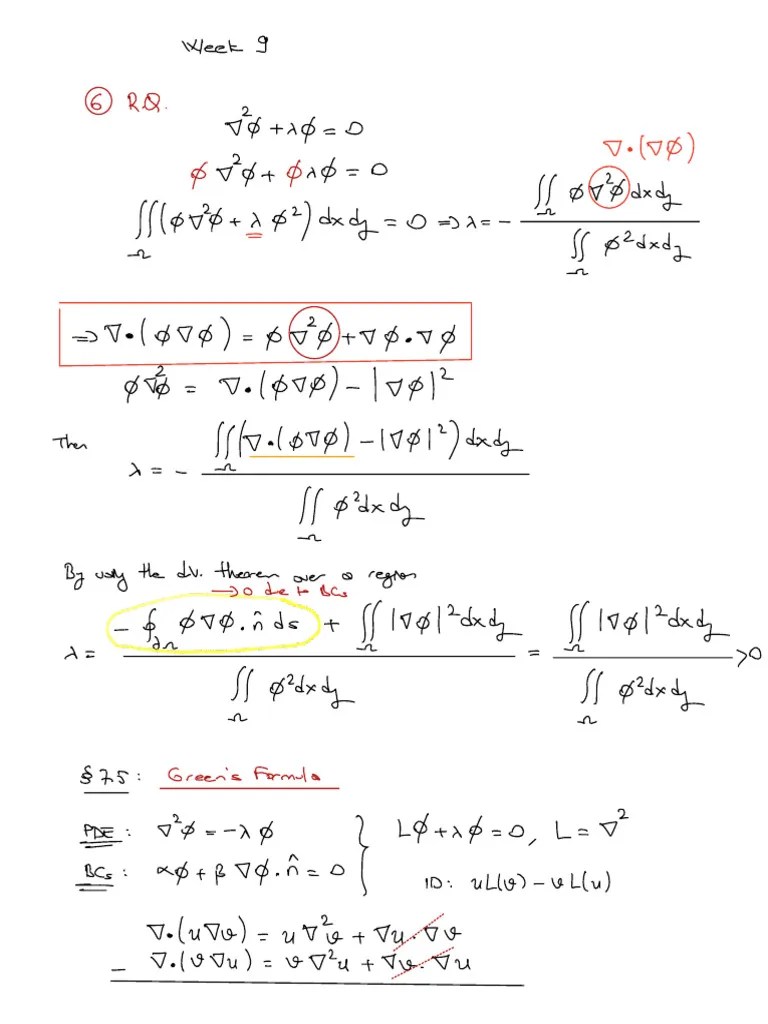 Week 9
⑥ R.Q.
∇²φ + λφ = 0
φ∇²φ + φλφ = 0
∇•(∇φ)
∬_Ω (φ∇²φ + λφ²) dxdy = 0 ⇒ λ = − ∬_Ω φ∇²φ dxdy / ∬_Ω φ² dxdy
⇒ ∇•(φ∇φ) = φ∇²φ + ∇φ•∇φ
φ∇²φ = ∇•(φ∇φ) − |∇φ|²
Then λ = − ∬_Ω (∇•(φ∇φ) − |∇φ|²) dxdy / ∬_Ω φ² dxdy
By using the div. theorem over a region
→ 0 due to BCs
λ = (− ∮_∂Ω φ∇φ.n̂ ds + ∬_Ω |∇φ|² dxdy) / ∬_Ω φ² dxdy = ∬_Ω |∇φ|² dxdy / ∬_Ω φ² dxdy > 0
§ 7.5 : Green's Formula
PDE : ∇²φ = −λφ } Lφ + λφ = 0, L = ∇²
BCs : αφ + β∇φ.n̂ = 0 } ID: uL(v) − vL(u)
∇•(u∇v) = u∇²v + ∇u•∇v
− ∇•(v∇u) = v∇²u + ∇v•∇u